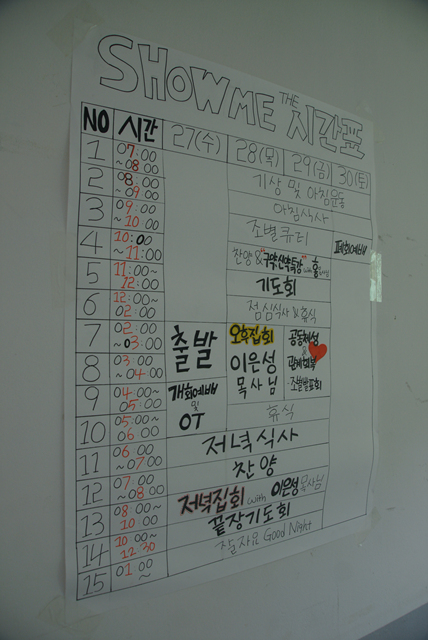 SHOW ME THE 시간표
NO 시간 27(수) 28(목) 29(금) 30(토)
1 07:00 ~08:00
기상 및 아침운동
2 08:00 ~09:00
아침식사
3 09:00 ~10:00
조별큐티
4 10:00 ~11:00
찬양 & "구약,신약특강" with
폐회예배
5 11:00~ 12:00
기도회
6 12:00~ 02:00
점심식사 & 휴식
7 02:00 ~03:00
출발
오후집회
이은성
목사님
공동체성
&
관계회복
8 03:00 ~04:00
조별발표회
9 04:00~ 05:00
개회예배
및
OT
휴식
10 05:00~ 06:00
저녁식사
11 06:00 ~07:00
찬양
12 07:00 ~08:00
저녁집회 with 이은성목사님
13 08:00~ 10:00
끝장기도회
14 10:00~ 12:30
잘자요 Good Night
15 01:00 ~